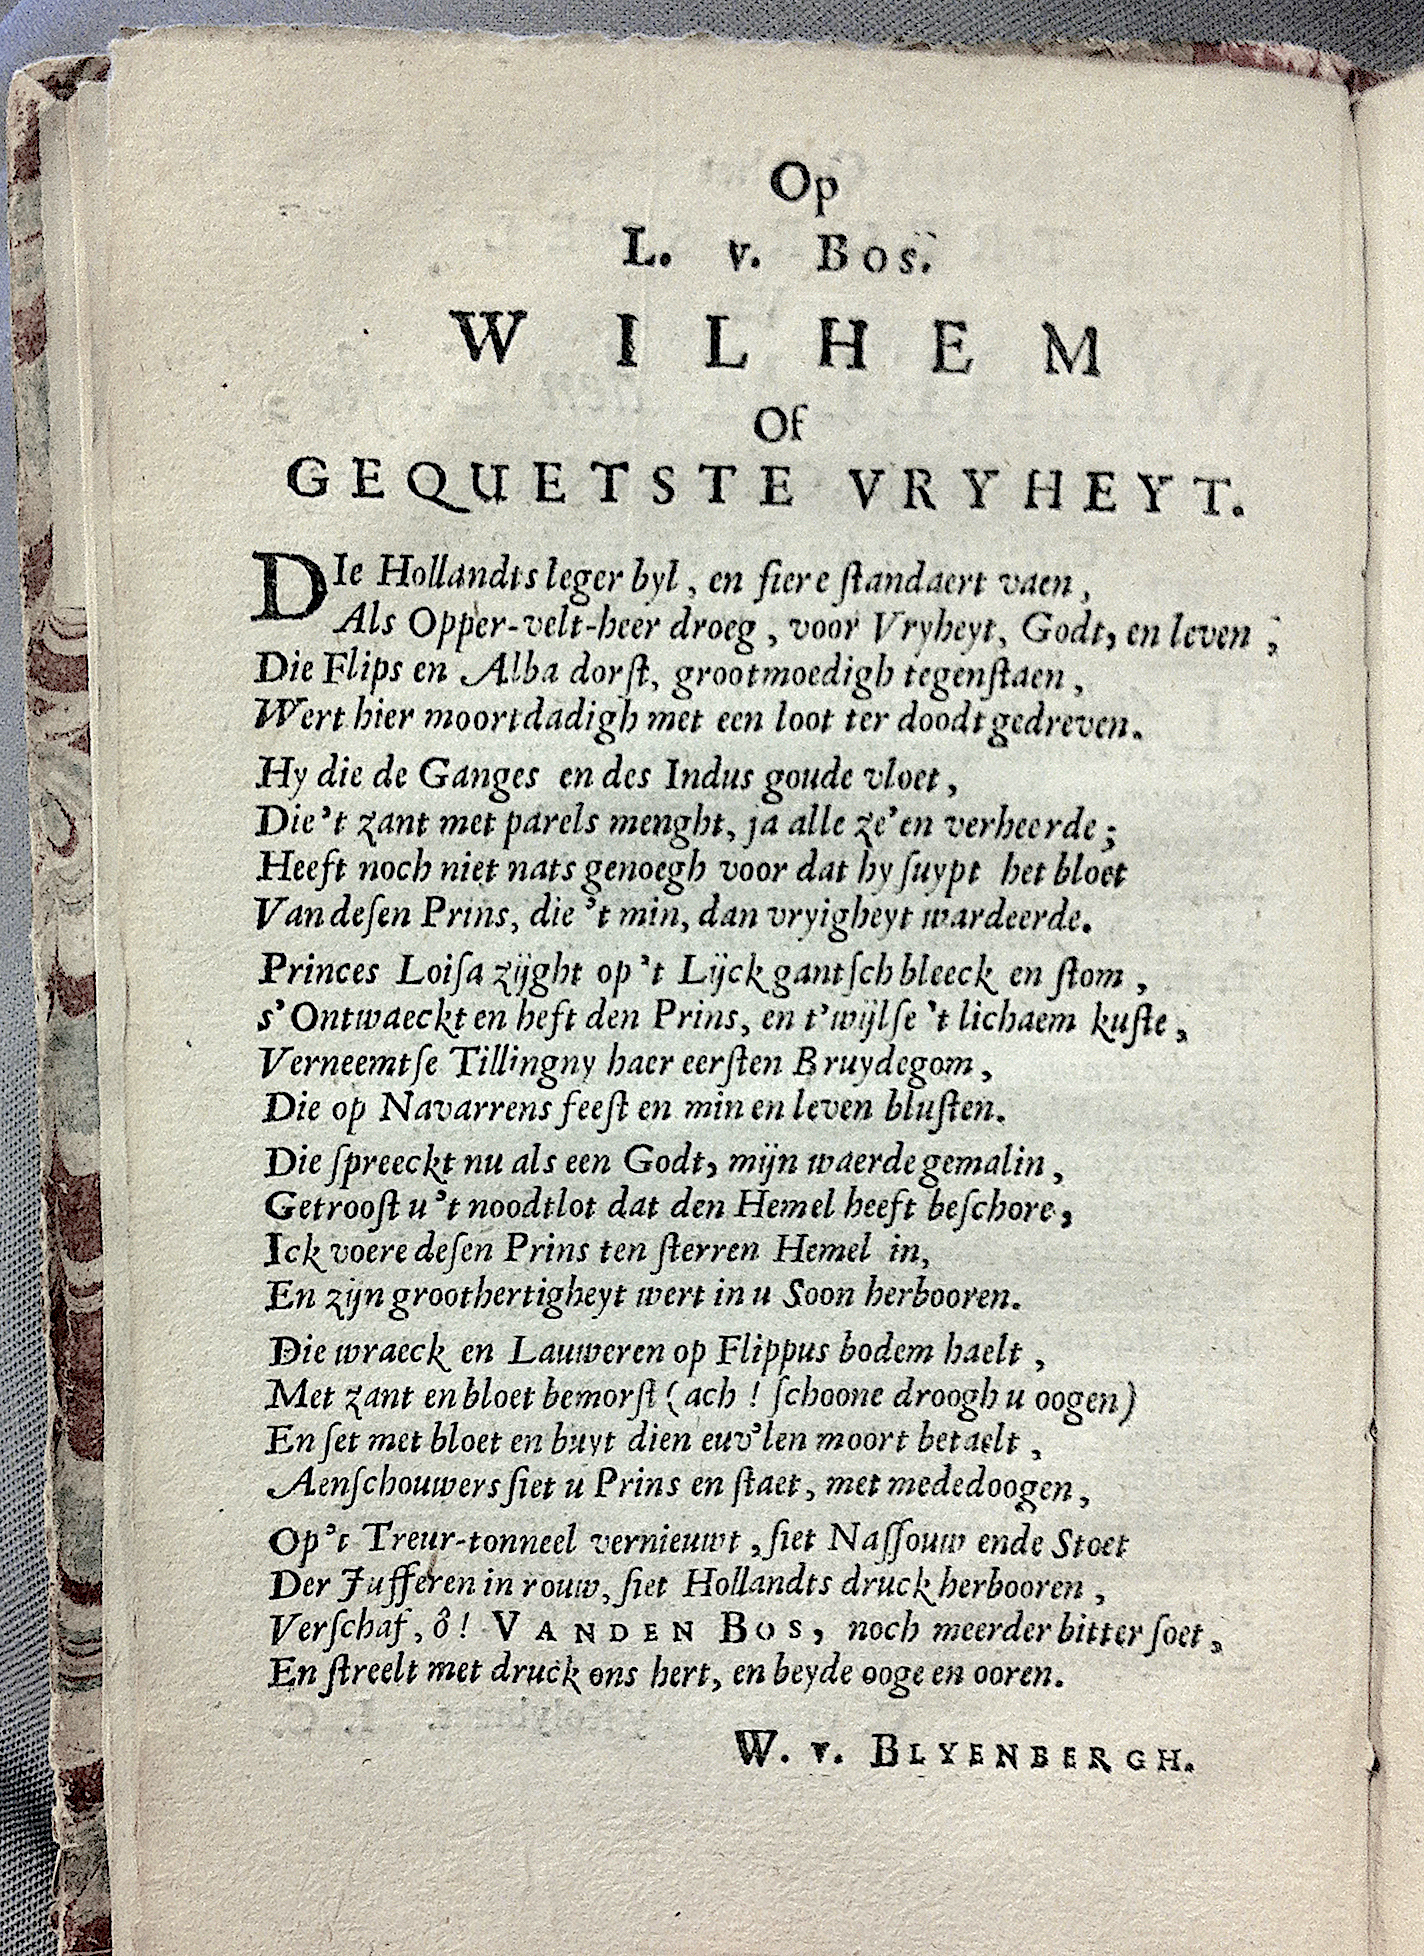 Op
L. v. Bos.
WILHEM
Of
GEQUETSTE VRYHEYT.
DIe Hollandts leger byl, en fiere ſtandaert vaen,
Als Opper-velt-heer droeg, voor Vryheyt, Godt, en leven;
Die Flips en Alba dorſt, grootmoedigh tegenſtaen,
Wert hier moortdadigh met een loot ter doodt gedreven.
Hy die de Ganges en des Indus goude vloet,
Die 't zant met parels menght, ja alle ze'en verheerde;
Heeft noch niet nats genoegh voor dat hy ſuypt het bloet
Van deſen Prins, die 't min, dan vryigheyt wardeerde.
Princes Loiſa zijght op 't Lijck gantſch bleeck en ſtom,
s'Ontwaeckt en heft den Prins, en t'wijlſe 't lichaem kuſte,
Verneemtſe Tillingny haer eerſten Bruydegom,
Die op Navarrens feeſt en min en leven bluſten.
Die ſpreeckt nu als een Godt, mijn waerde gemalin,
Getrooſt u 't noodtlot dat den Hemel heeft beſchore,
Ick voere deſen Prins ten ſterren Hemel in,
En zijn groothertigheyt wert in u Soon herbooren.
Die wraeck en Lauweren op Flippus bodem haelt,
Met zant en bloet bemorſt (ach! ſchoone droogh u oogen)
En ſet met bloet en buyt dien euv'len moort betaelt,
Aenſchouwers ſiet u Prins en ſtaet, met mededoogen,
Op 't Treur-tonneel vernieuwt, ſiet Naſſouw ende Stoet
Der Jufferen in rouw, ſiet Hollandts druck herbooren,
Verſchaf, ô! VANDEN BOS, noch meerder bitter ſoet,
En ſtreelt met druck ons hert, en beyde ooge en ooren.
W. v. BLYENBERGH.